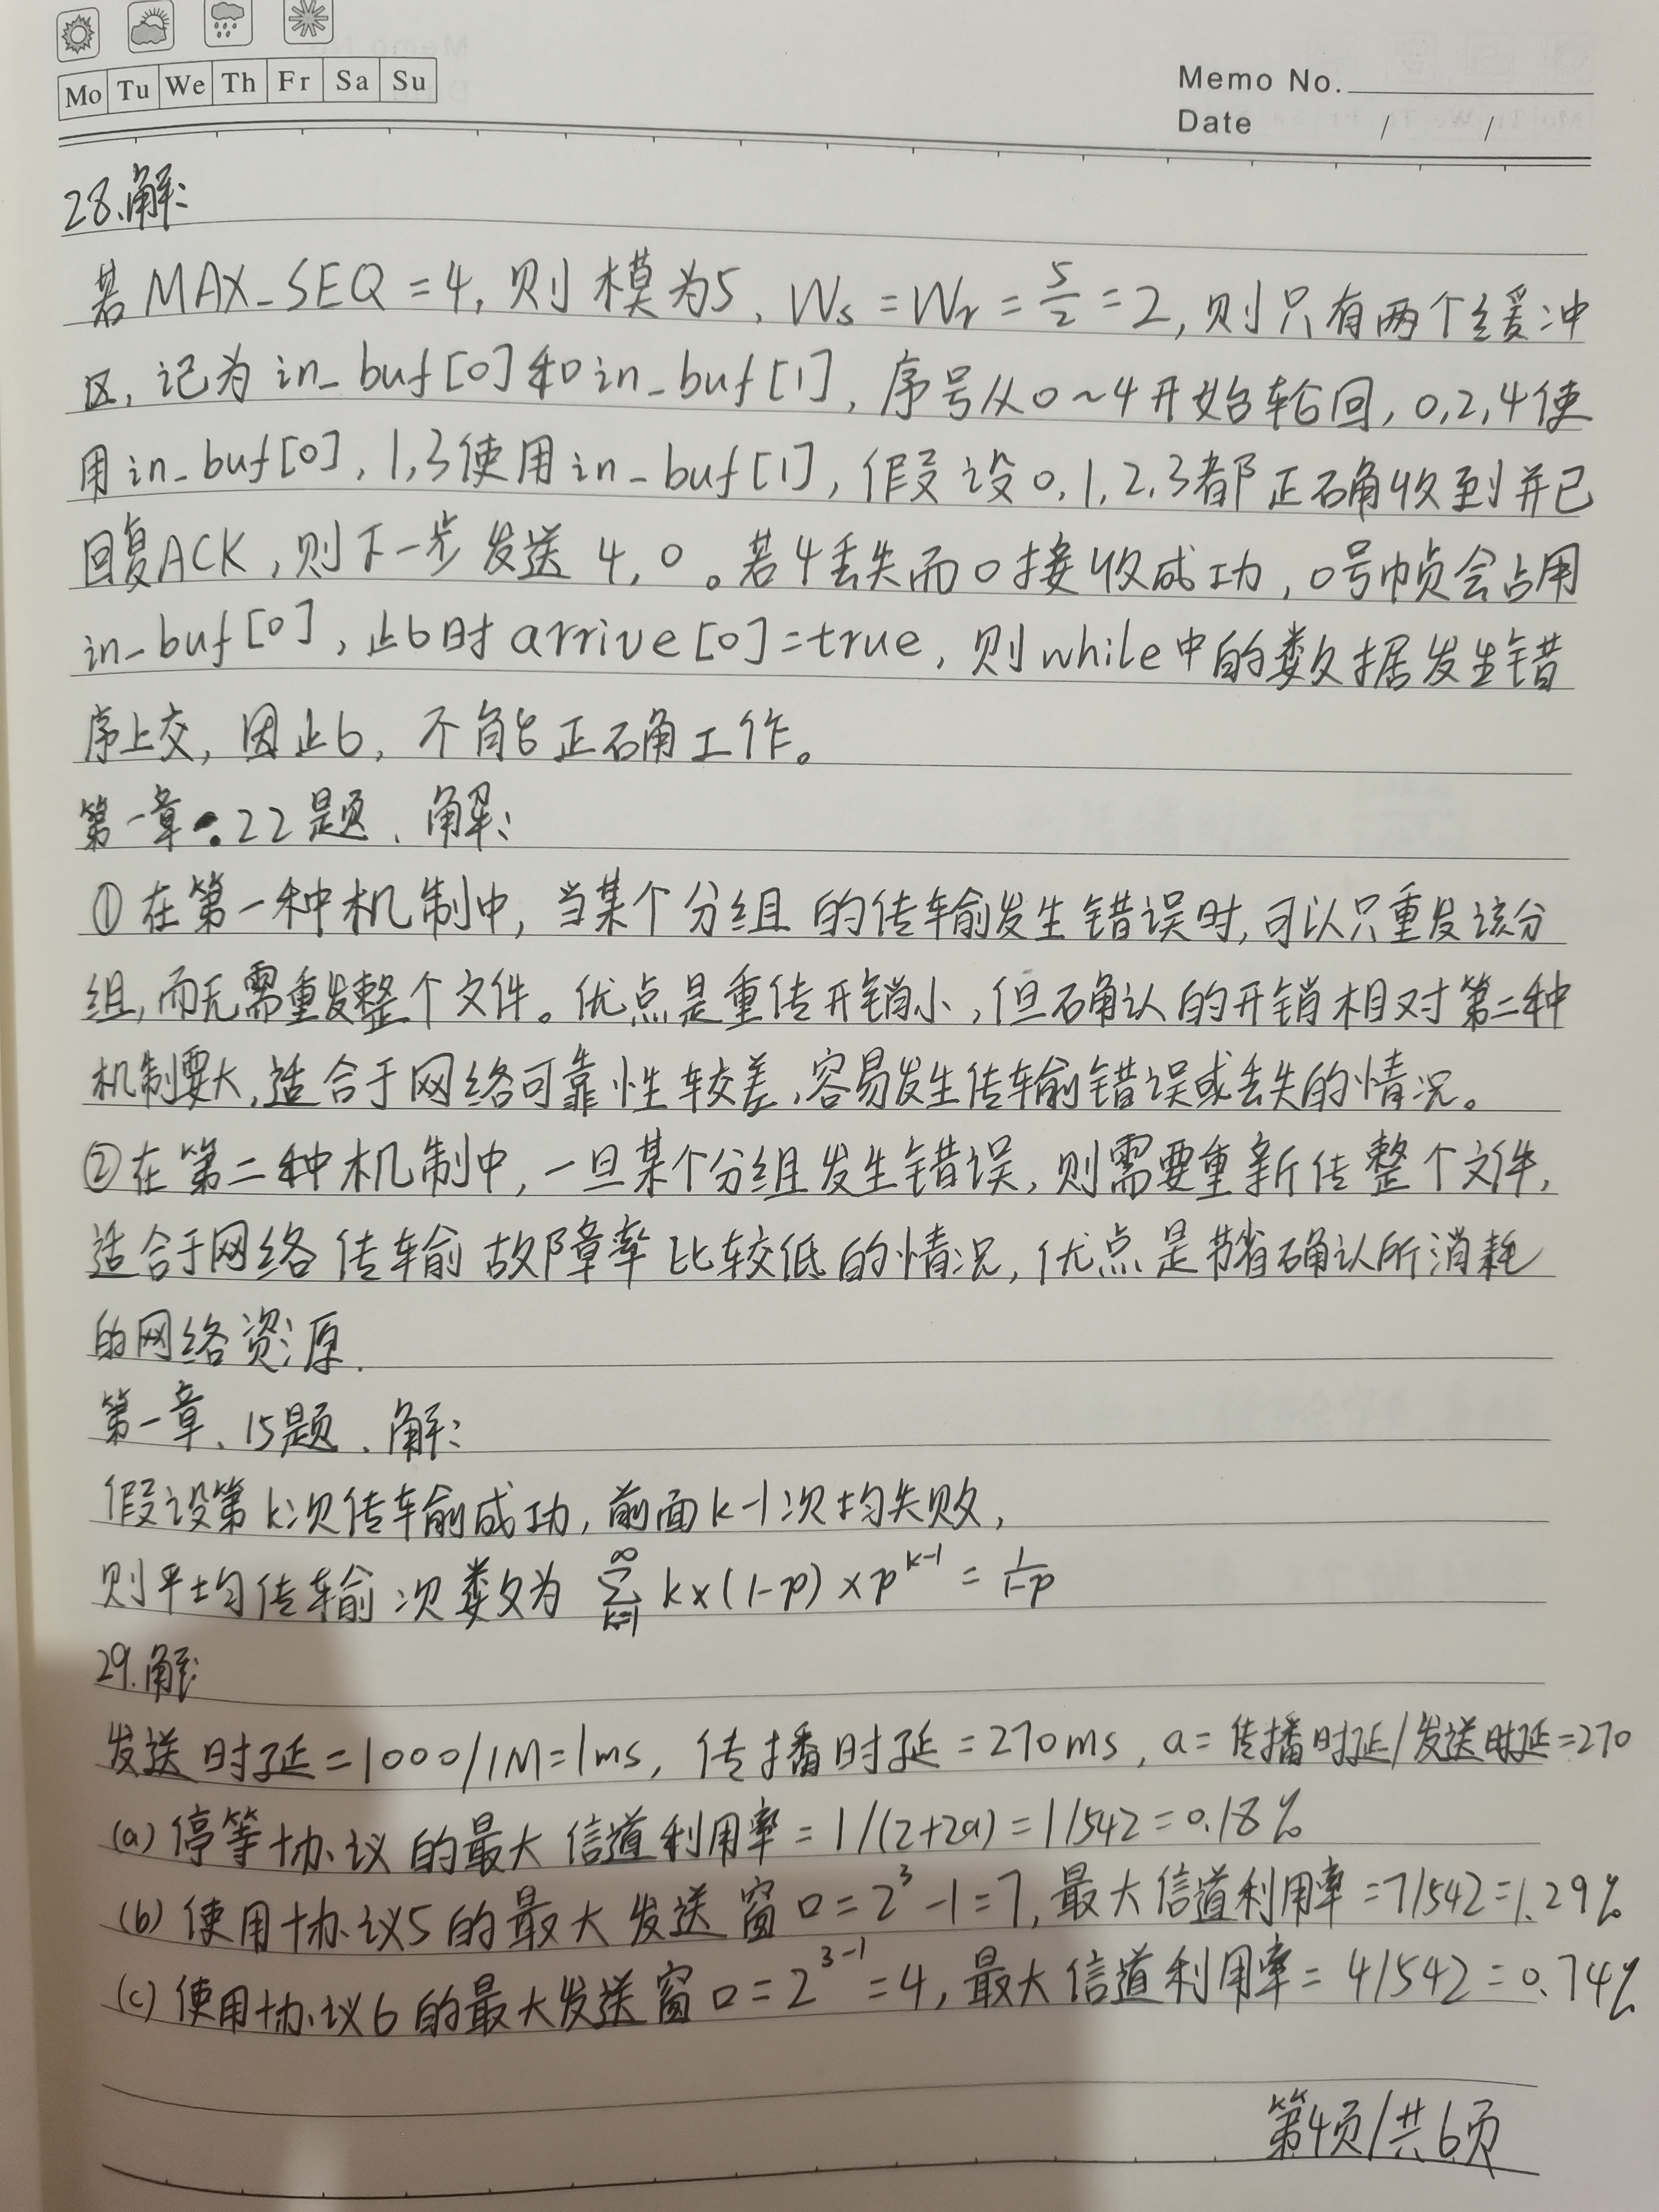 Mo Tu We Th Fr Sa Su
Memo No.
Date / /
28、解:
若MAX_SEQ=4,则模为5,Ws=Wr=5/2=2,则只有两个缓冲
区,记为in_buf[0]和in_buf[1],序号从0~4开始轮回,0,2,4使
用in_buf[0],1,3使用in_buf[1],假设0,1,2,3都正确收到并已
回复ACK,则下一步发送4,0。若4丢失而0接收成功,0号帧会占用
in_buf[0],此时arrive[0]=true,则while中的数据发生错
序上交,因此,不能正确工作。
第一章.22题、解:
①在第一种机制中,当某个分组的传输发生错误时,可以只重发该分
组,而无需重发整个文件。优点是重传开销小,但确认的开销相对第二种
机制要大,适合于网络可靠性较差,容易发生传输错误或丢失的情况。
②在第二种机制中,一旦某个分组发生错误,则需要重新传整个文件,
适合于网络传输故障率比较低的情况,优点是节省确认所消耗
的网络资源.
第一章、15题、解:
假设第k次传输成功,前面k-1次均失败,
则平均传输次数为 ∑_{k=1}^{∞} k×(1-p)×p^{k-1} = 1/(1-p)
29.解:
发送时延=1000/1M=1ms,传播时延=270ms,a=传播时延/发送时延=270
(a)停等协议的最大信道利用率=1/(2+2a)=1/542=0.18%
(b)使用协议5的最大发送窗口=2³-1=7,最大信道利用率=7/542=1.29%
(c)使用协议6的最大发送窗口=2^{3-1}=4,最大信道利用率=4/542=0.74%
第4页/共6页